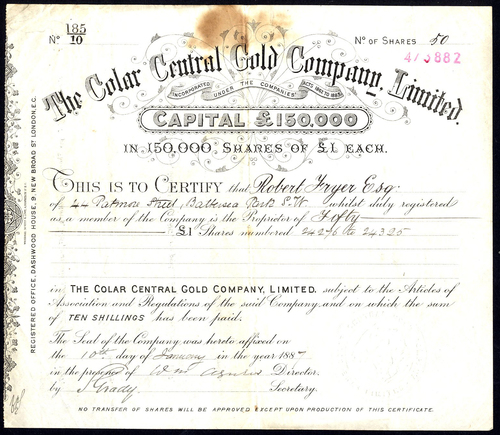 No 185/10
No OF SHARES 50
475882
The Colar Central Gold Company, Limited.
INCORPORATED UNDER THE COMPANIES' ACTS 1862 TO 1883.
CAPITAL £150,000
IN 150,000 SHARES OF £1 EACH.
THIS IS TO CERTIFY that Robert Fryer Esq.
of 44 Patmos Street, Battersea Park S.W. whilst duly registered
as a member of the Company is the Proprietor of Fifty
£1 Shares numbered 24276 to 24325
in THE COLAR CENTRAL GOLD COMPANY, LIMITED. subject to the Articles of
Association and Regulations of the said Company and on which the sum
of TEN SHILLINGS has been paid.
The Seal of the Company was hereto affixed on
the 10th day of January in the year 1887
in the presence of Wm Director.
by J Grady Secretary.
NO TRANSFER OF SHARES WILL BE APPROVED EXCEPT UPON PRODUCTION OF THIS CERTIFICATE.
REGISTERED OFFICE, DASHWOOD HOUSE, 9, NEW BROAD ST LONDON, E.C.